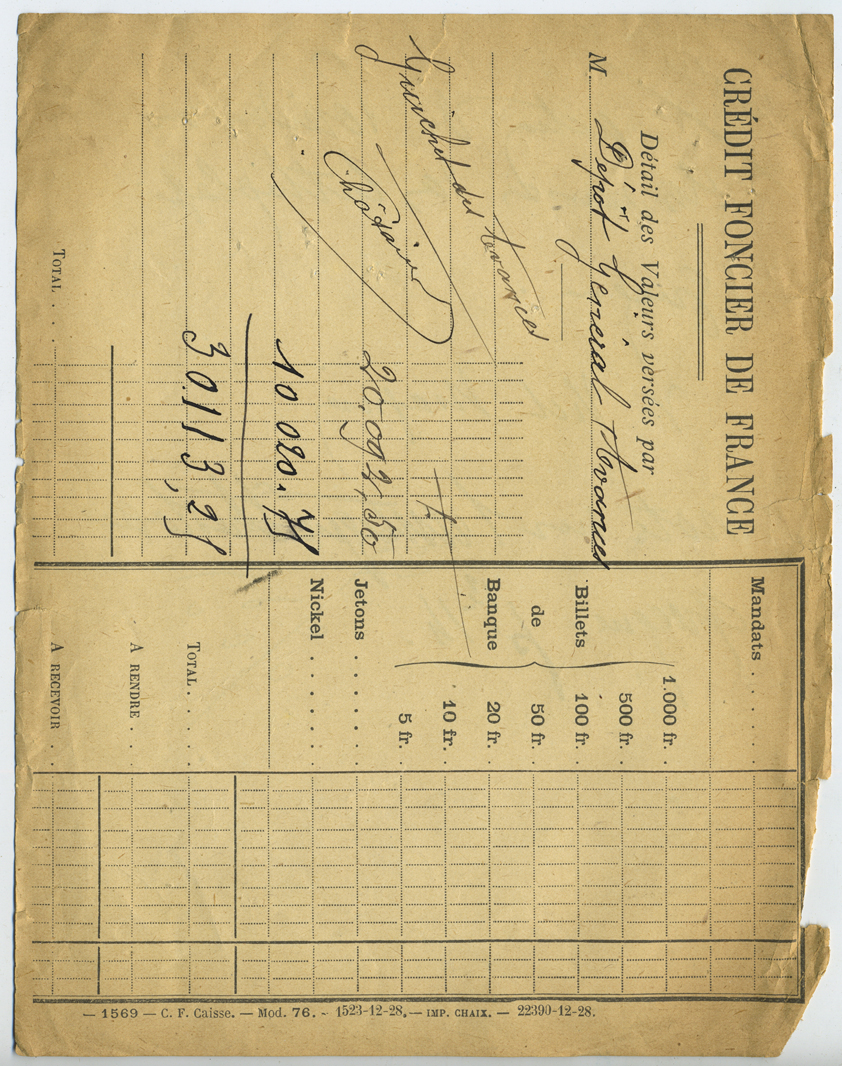 CRÉDIT FONCIER DE FRANCE
Détail des Valeurs versées par
M Dépot général Avances
Guichet des Avances
20.092,50
10 020.75
30.113,25
TOTAL . . .
Mandats . . . . .
Billets de Banque
1.000 fr. .
500 fr. .
100 fr. .
50 fr. .
20 fr. .
10 fr. .
5 fr. .
Jetons . . . . . .
Nickel . . . . . .
TOTAL. . . .
A RENDRE . .
A RECEVOIR . .
— 1569 — C. F. Caisse. — Mod. 76. - 1523-12-28. — IMP. CHAIX. — 22390-12-28.